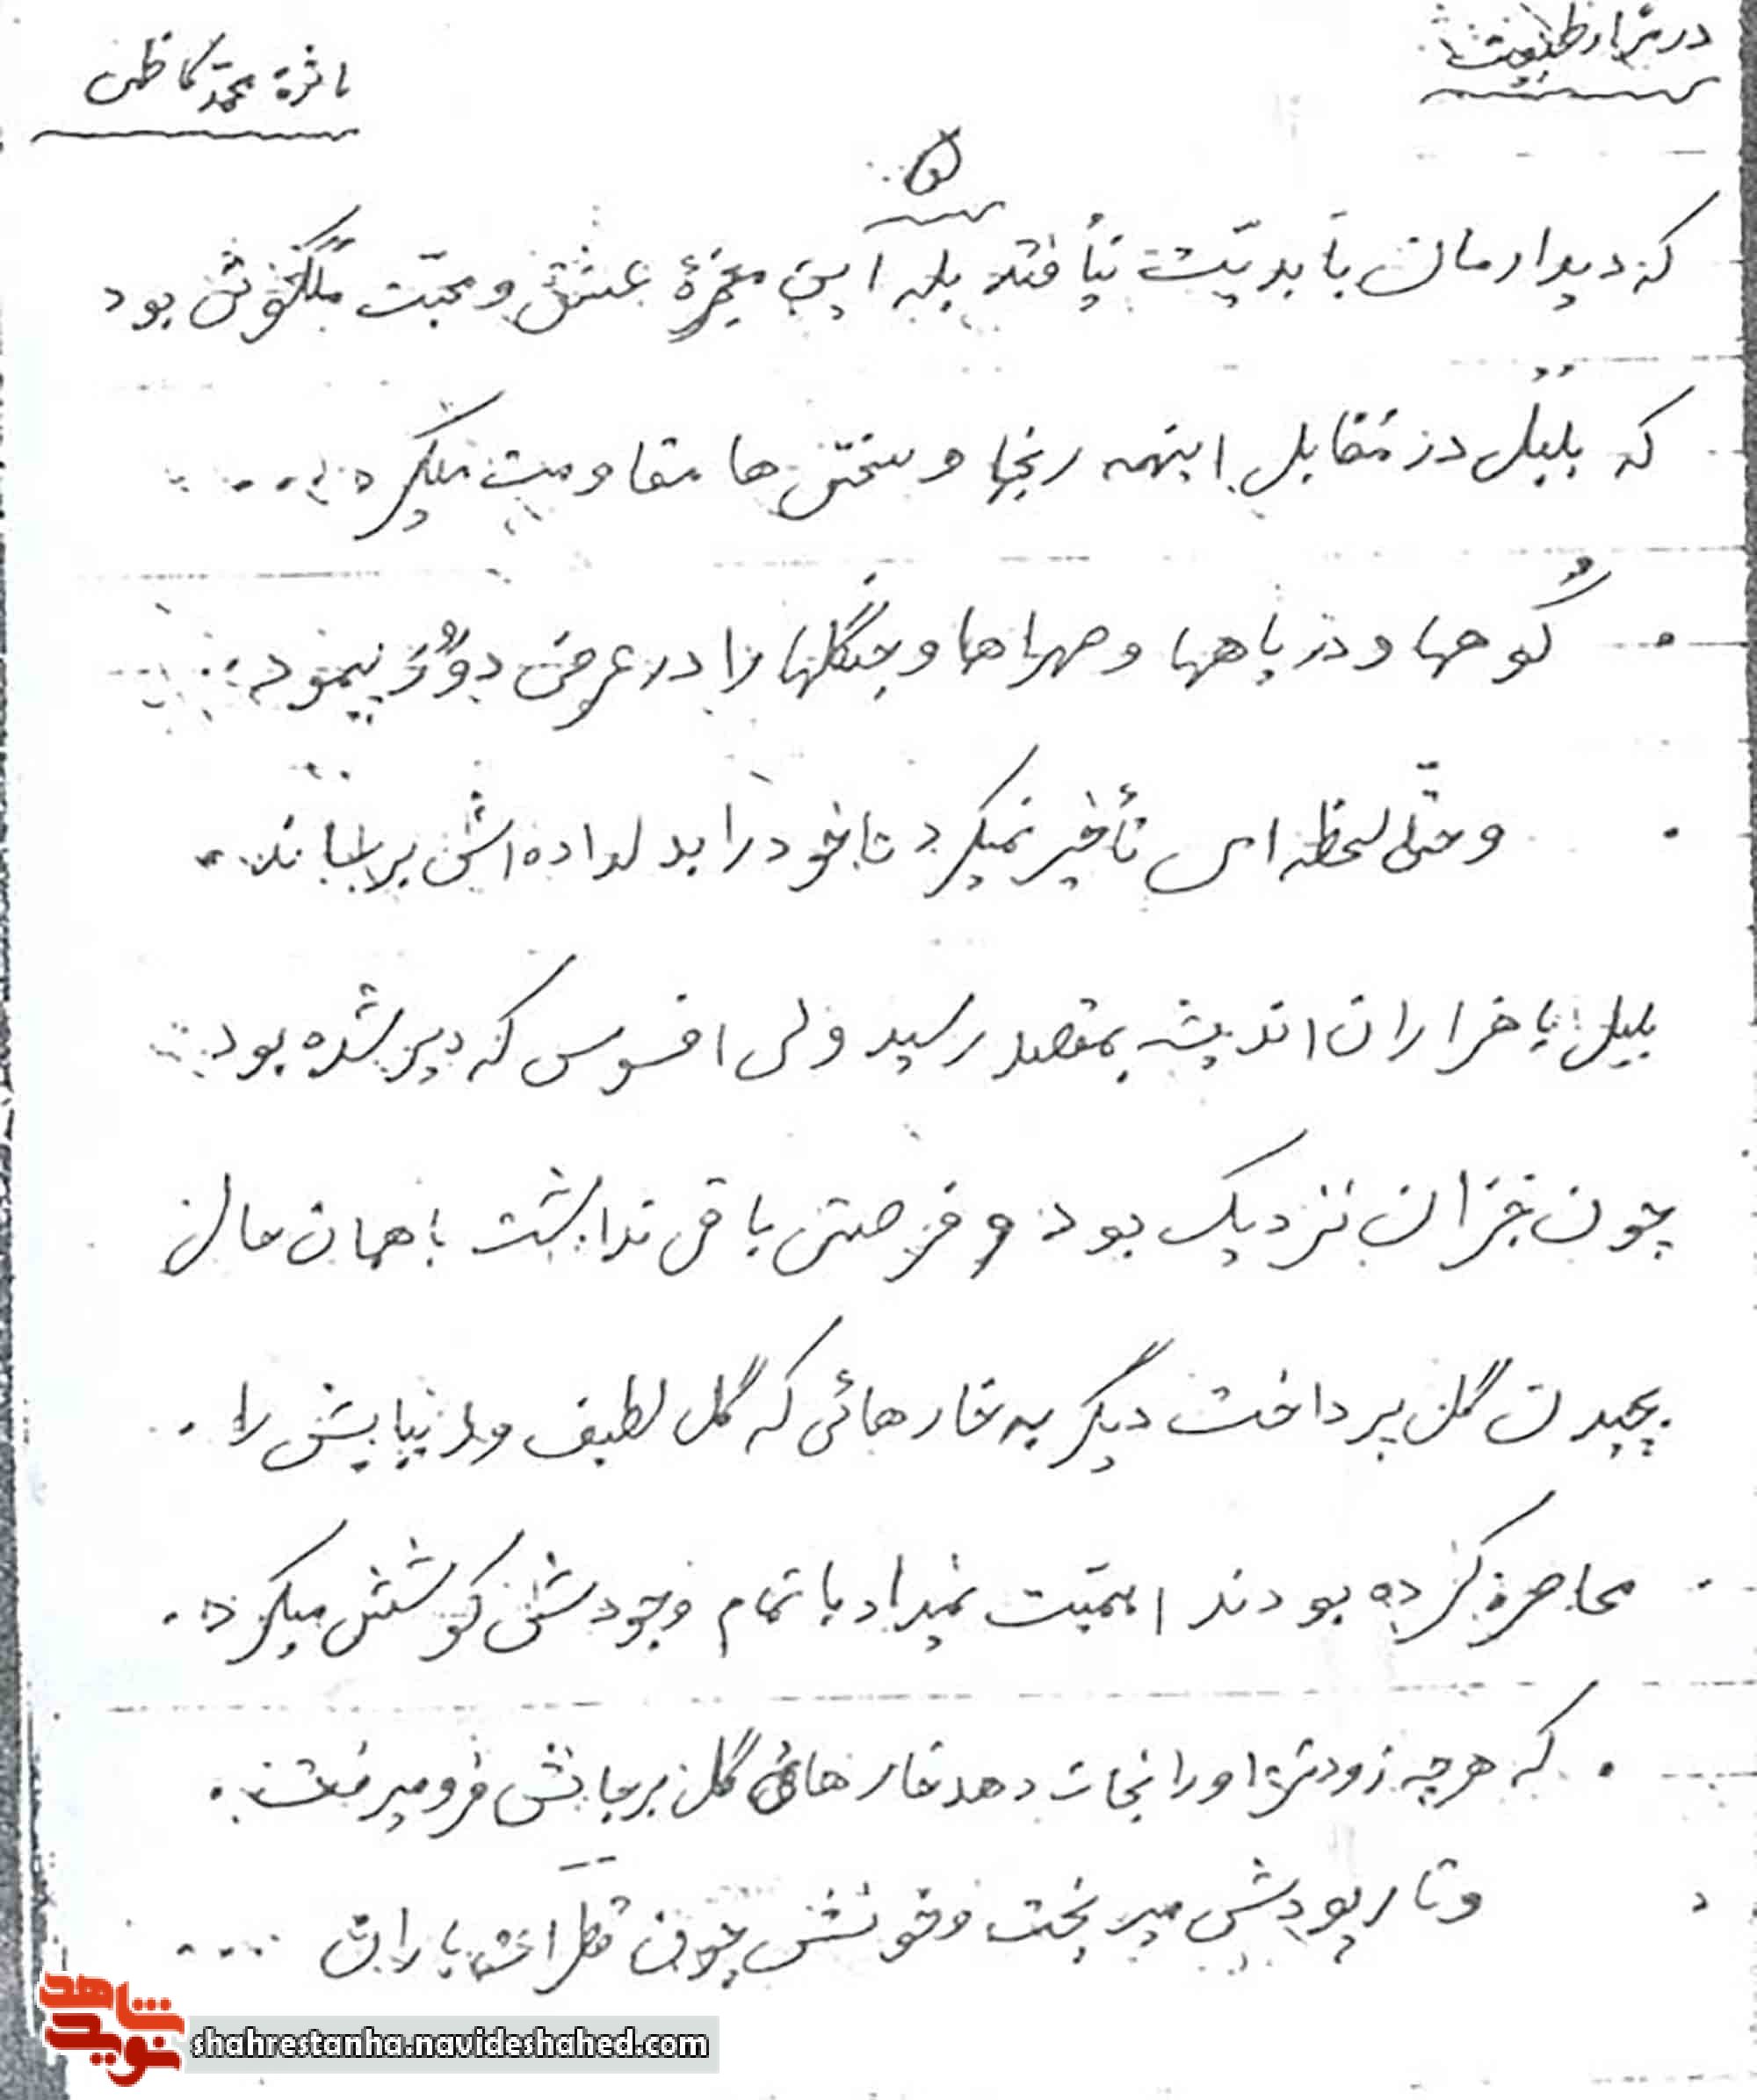 در مزار طبیعت
مائزه محمد کاظمی
۵
که دیدارمان بابدیّت نیافته بله این معجزهٔ عشق و محبّت ملکوتش بود
که بلبل در مقابل اینهمه رنجها و سختی ها مقاومت میکرد ....
کوهها و دریاهها و صهراها و جنگلها را در عرض دو روز پیمود
و حتّی لحظه ای تأخیر نمیکرد تا خود را بدلداده اش برساند
بلبل با هزاران اندیشه بمقصد رسید ولی افسوس که دیر شده بود
چون خزان نزدیک بود و فرصتی باقی نداشت باهمان حال
بچیدن گل پرداخت دیگر به خارهائی که گل لطیف و زیبایش را
محاصره کرده بودند اهمّیّت نمیداد با تمام وجودش کوشش میکرد
که هرچه زودتر او را نجات دهد خارهای گل بر جانش فرو میرفت
و تار پودش میریخت و خونش چون قطرات باران ....
شاهد
نوید
shahrestanha.navideshahed.com